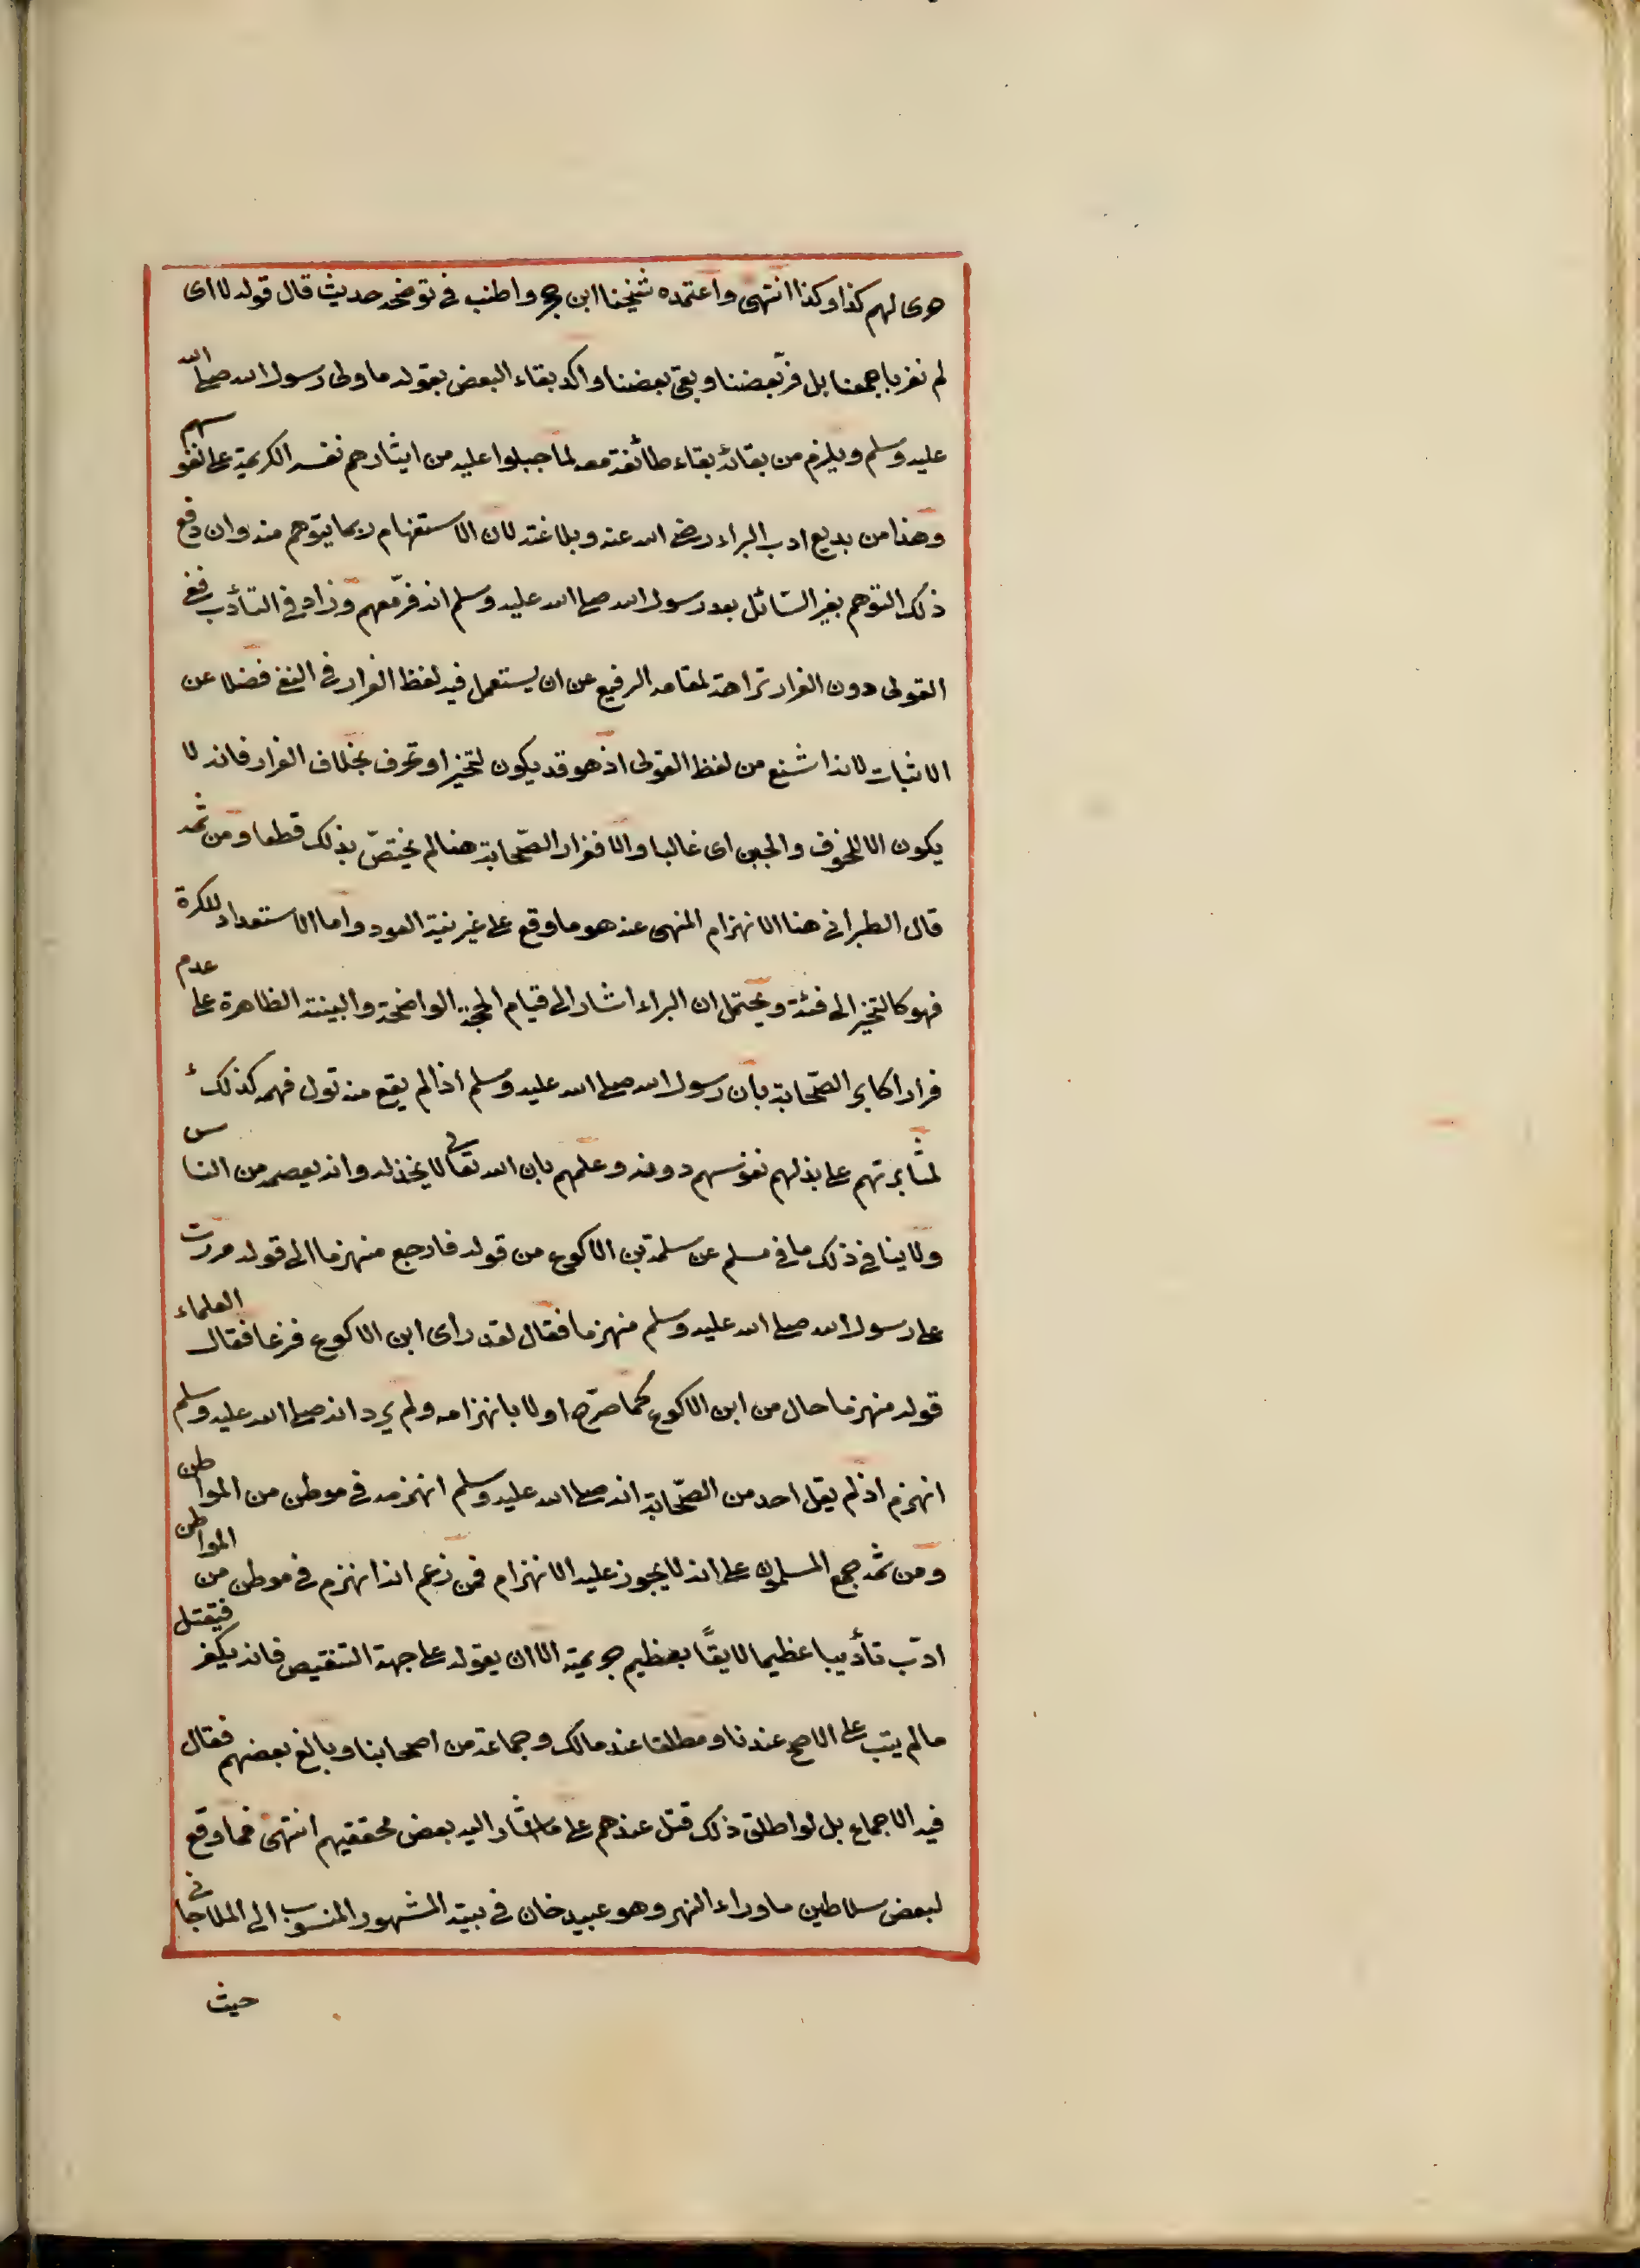 جرى لهم كذا وكذا انتهى واعتمده شيخنا ابن حجر واطنب فى توضيحه حديث قال قوله لا اى
لم نفر باجمعنا بل فرّ بعضنا وبقى بعضنا واكد بقاء البعض بقوله ما ولى رسول الله صلى الله
عليه وسلم ويلزم من بقائه بقاء طائفة معه لما جبلوا عليه من ايثارهم نفسه الكريمة على نفوسهم
وهذا من بديع ادب البراء رضى الله عنه وبلاغته لان الاستفهام ربما يتوهم منه وان دفع
ذلك التوهم بغير السّائل بعد رسول الله صلى الله عليه وسلم انه فرّ معهم وزاد فى التأدّب فنفى
التولى دون الفرار نزاهة لمقامه الرفيع عن ان يستعمل فيه لفظ الفرار فى النفى فضلا عن
الاثبات لانه اشنع من لفظ التولى اذ هو قد يكون لتحيز او تحرف بخلاف الفرار فانه لا
يكون الا للخوف والجبن اى غالبا والا ففرار الصّحابة هنا لم يختصّ بذلك قطعا ومن ثمه
قال الطبرانى هنا الانهزام المنهى عنه هو ما وقع على غير نية العود واما الاستعداد للكرة
فهو كالتحيز الى فئة ويحتمل ان البراء اشار الى قيام الحجة الواضحة والبينة الظاهرة على عدم
فرار اكابر الصّحابة بان رسول الله صلى الله عليه وسلم اذا لم يقع منه تول فهم كذلك
لمثابرتهم على بذلهم نفوسهم دونه وعلمهم بان الله تعالى لا يخذله وانه يعصمه من الناس
ولا ينافى ذلك ما فى مسلم عن سلمة بن الاكوع من قوله فارجع منهزما الى قوله مررت
على رسول الله صلى الله عليه وسلم منهزما فقال لقد رأى ابن الاكوع فزعا فقال العلماء
قوله منهزما حال من ابن الاكوع كما صرّح اولا بانهزامه ولم يرد انه صلى الله عليه وسلم
انهزم اذ لم يقل احد من الصّحابة انه صلى الله عليه وسلم انهزمه فى موطن من المواطن
ومن ثمه جمع المسلمون على انه لا يجوز عليه الانهزام فمن زعم انه انهزم فى موطن من المواطن
ادّب تأديبا عظيما لايقًا بعظيم جريمته الا ان يقوله على جهة التنقيص فانه يكفر فيقتل
ما لم يتب على الاصح عندنا ومطلقا عند مالك وجماعة من اصحابنا وبالغ بعضهم فقال
فيه الاجماع بل لو اطلق ذلك قتل عندهم على ما اشار اليه بعض محققيهم انتهى فما وقع
لبعض سلاطين ما وراء النهر وهو عبيد خان فى بيته المشهور المنسوب الى الملا جانى
حيث